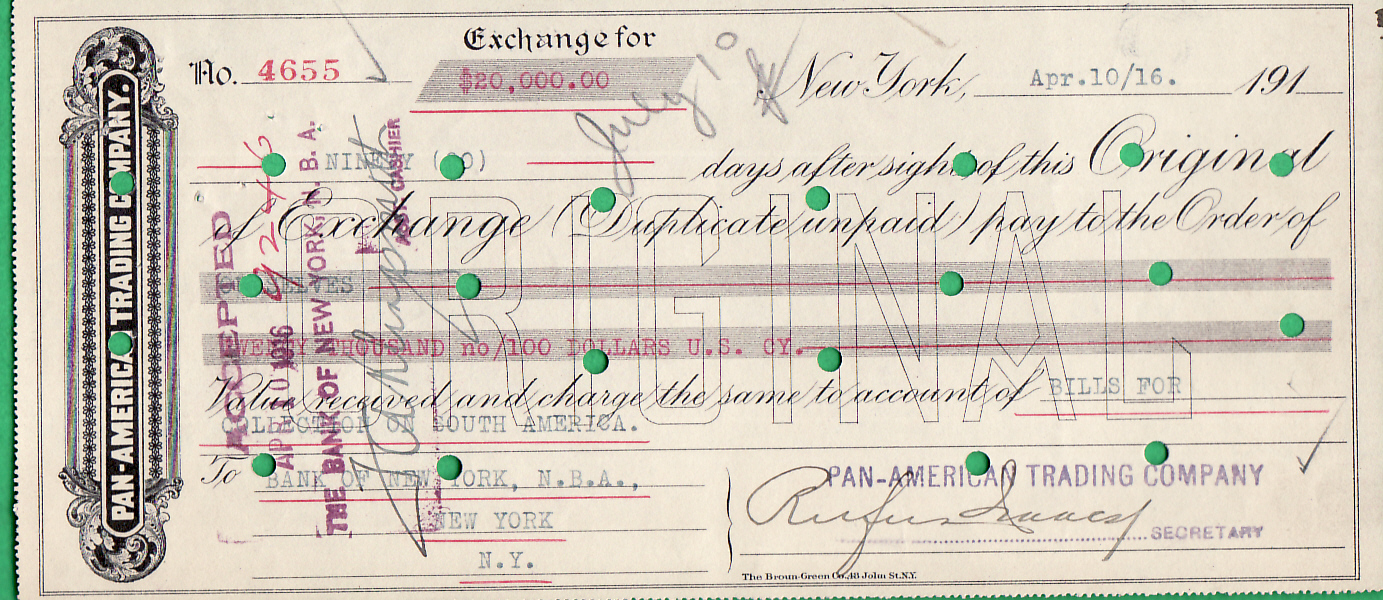 PAN-AMERICAN TRADING COMPANY.
Exchange for
No. 4655
$20,000.00
July 10
New York, Apr.10/16. 191
NINETY (90) days after sight of this Original
of Exchange (Duplicate unpaid) pay to the Order of
OURSELVES
TWENTY THOUSAND no/100 DOLLARS U.S. CY.
Value received and charge the same to account of BILLS FOR
COLLECTION ON SOUTH AMERICA.
To BANK OF NEW YORK, N.B.A.,
NEW YORK
N.Y.
ORIGINAL
ACCEPTED
APR 10 1916
THE BANK OF NEW YORK, N. B. A.
ASST. CASHIER
PAN-AMERICAN TRADING COMPANY
Rufus Isaacs
SECRETARY
The Broun-Green Co., 48 John St. N.Y.